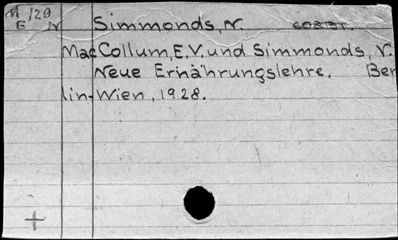 /29
E N Simmonds, N.
MacCollum, E. V. und Simmonds, N.
Neue Ernährungslehre. Ber
lin-Wien, 1928.